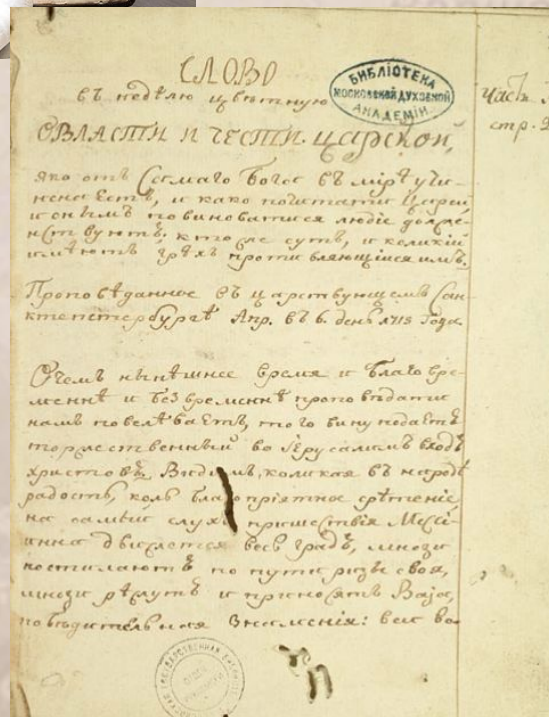 СЛОВО
въ неделю цвѣтную
О ВЛАСТИ И ЧЕСТИ ЦАРСКОЙ,
яко отъ Самаго Бога въ мірѣ учи-
нена Есть, и како почитати Царей
и онымъ повиноватися людіе долже-
нствуютъ. кто же суть, и коликій
имѣютъ грѣхъ противляющіися имъ.
Проповѣданное въ царствующемъ Сан-
ктпетербургѣ Апр. въ 6. день 1718 Года.
Очемъ нынѣшнее время и благовре-
меннѣ и безвременнѣ проповѣдати
намъ повелѣваетъ, того вину подаетъ
торжественный во Іерусалимъ входъ
христовъ. Видимъ, коликая въ народѣ
радость, коль благопріятное срѣтеніе
на самый слухъ пришествія Мессі-
анна движется весь градъ, мнози
постилаютъ по пути ризы своя,
мнози рѣжутъ и приносятъ Ваіа,
побѣдительная знаменія: вси во
БИБЛІОТЕКА
МОСКОВСКОЙ ДУХОВНОЙ
АКАДЕМІИ
Часть
стр.